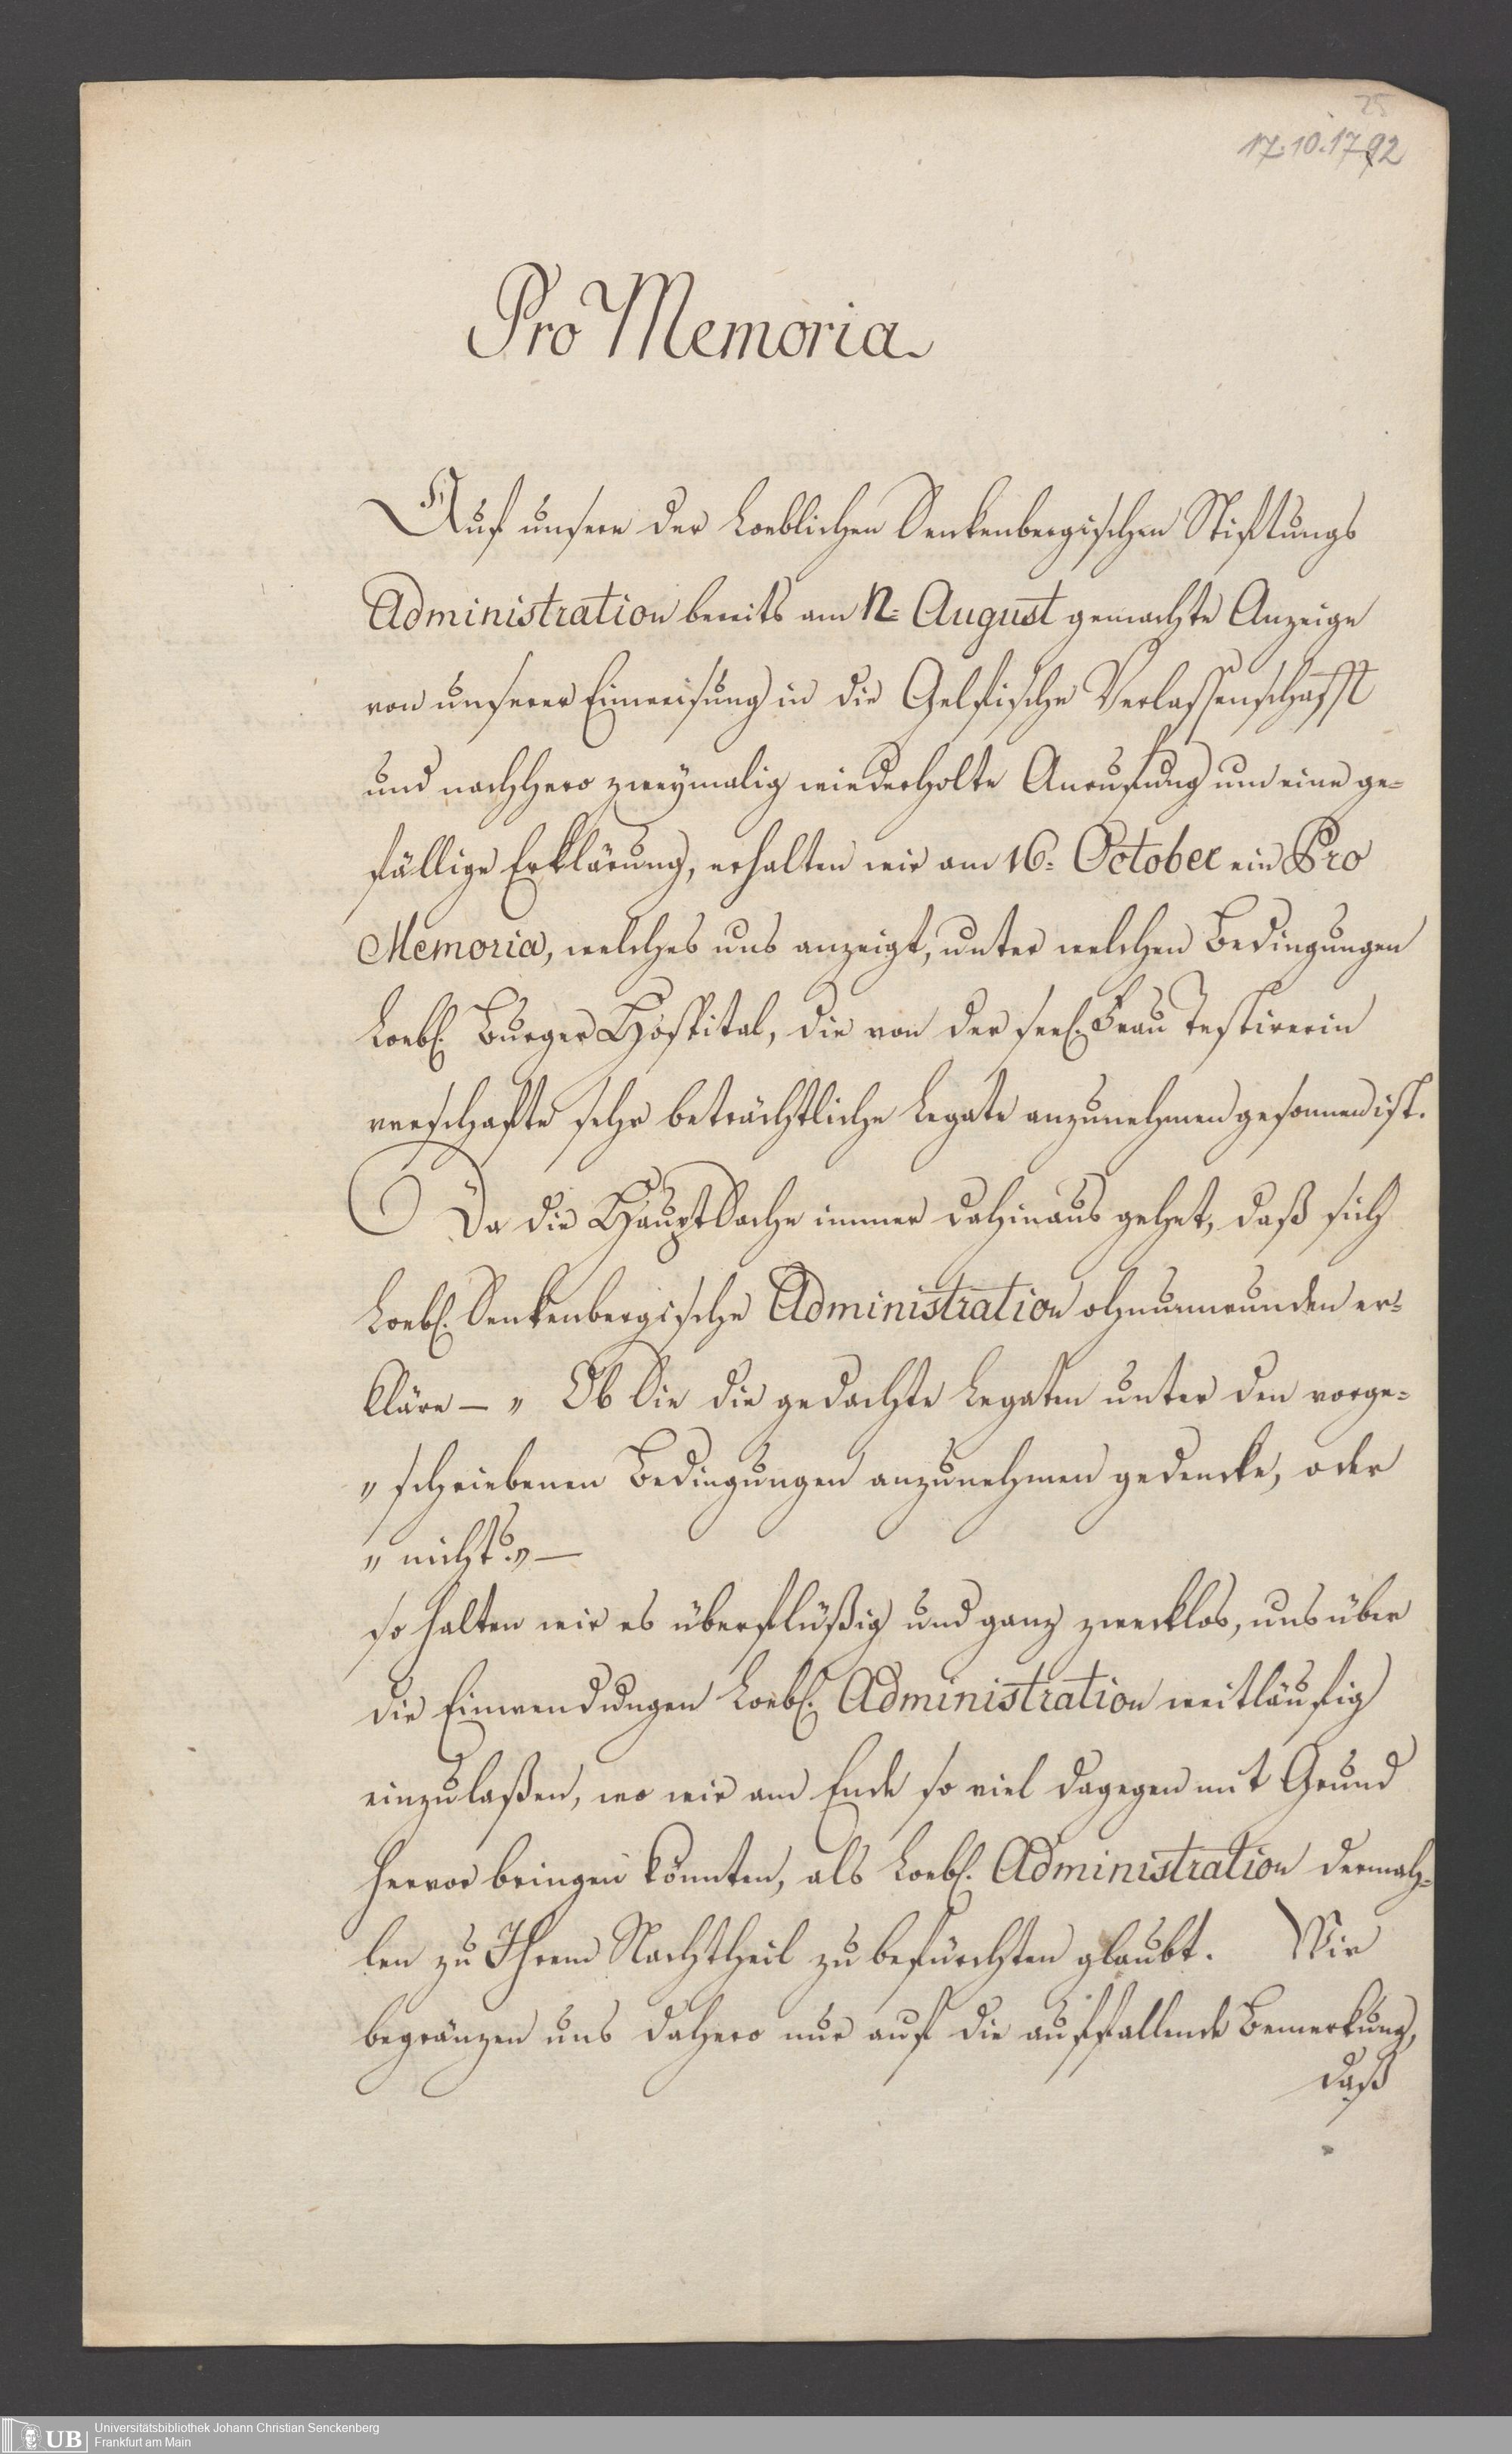 25
17.10.1792
Pro Memoria
Auf unsere der Loeblichen Senkenbergischen Stiftungs
Administration bereits am 12= August gemachte Anzeige
von unserer Einweisung in die Gelfische Verlassenschafft
und nachhero zweymalig wiederholte Anrufung um eine ge=
fällige Erklärung, erhalten wir am 16= October ein Pro
Memoria, welches uns anzeigt, unter welchen Bedingungen
Loebl. Burger Hospital, die von der seel. Frau Testirerin
verschafte sehr beträchtliche Legate anzunehmen gesonnen ist.
Da die Hauptsache immer dahinaus gehet, daß sich
Loebl. Senkenbergische Administration ohnumwunden er=
kläre – „ Ob Sie die gedachte Legaten unter den vorge=
„ schriebenen Bedingungen anzunehmen gedencke, oder
„ nicht?„ –
so halten wir es überflüßig und ganz zwecklos, uns über
die Einwendungen Loebl. Administration weitläufig
einzulaßen, wo wir am Ende so viel dagegen mit Grund
hervor bringen könnten, als Loebl. Administration dermah=
len zu Ihrem Nachtheil zu befürchten glaubt. Wir
begränzen uns dahero nur auf die auffallende Bemerkung,
daß
UB
Universitätsbibliothek Johann Christian Senckenberg
Frankfurt am Main